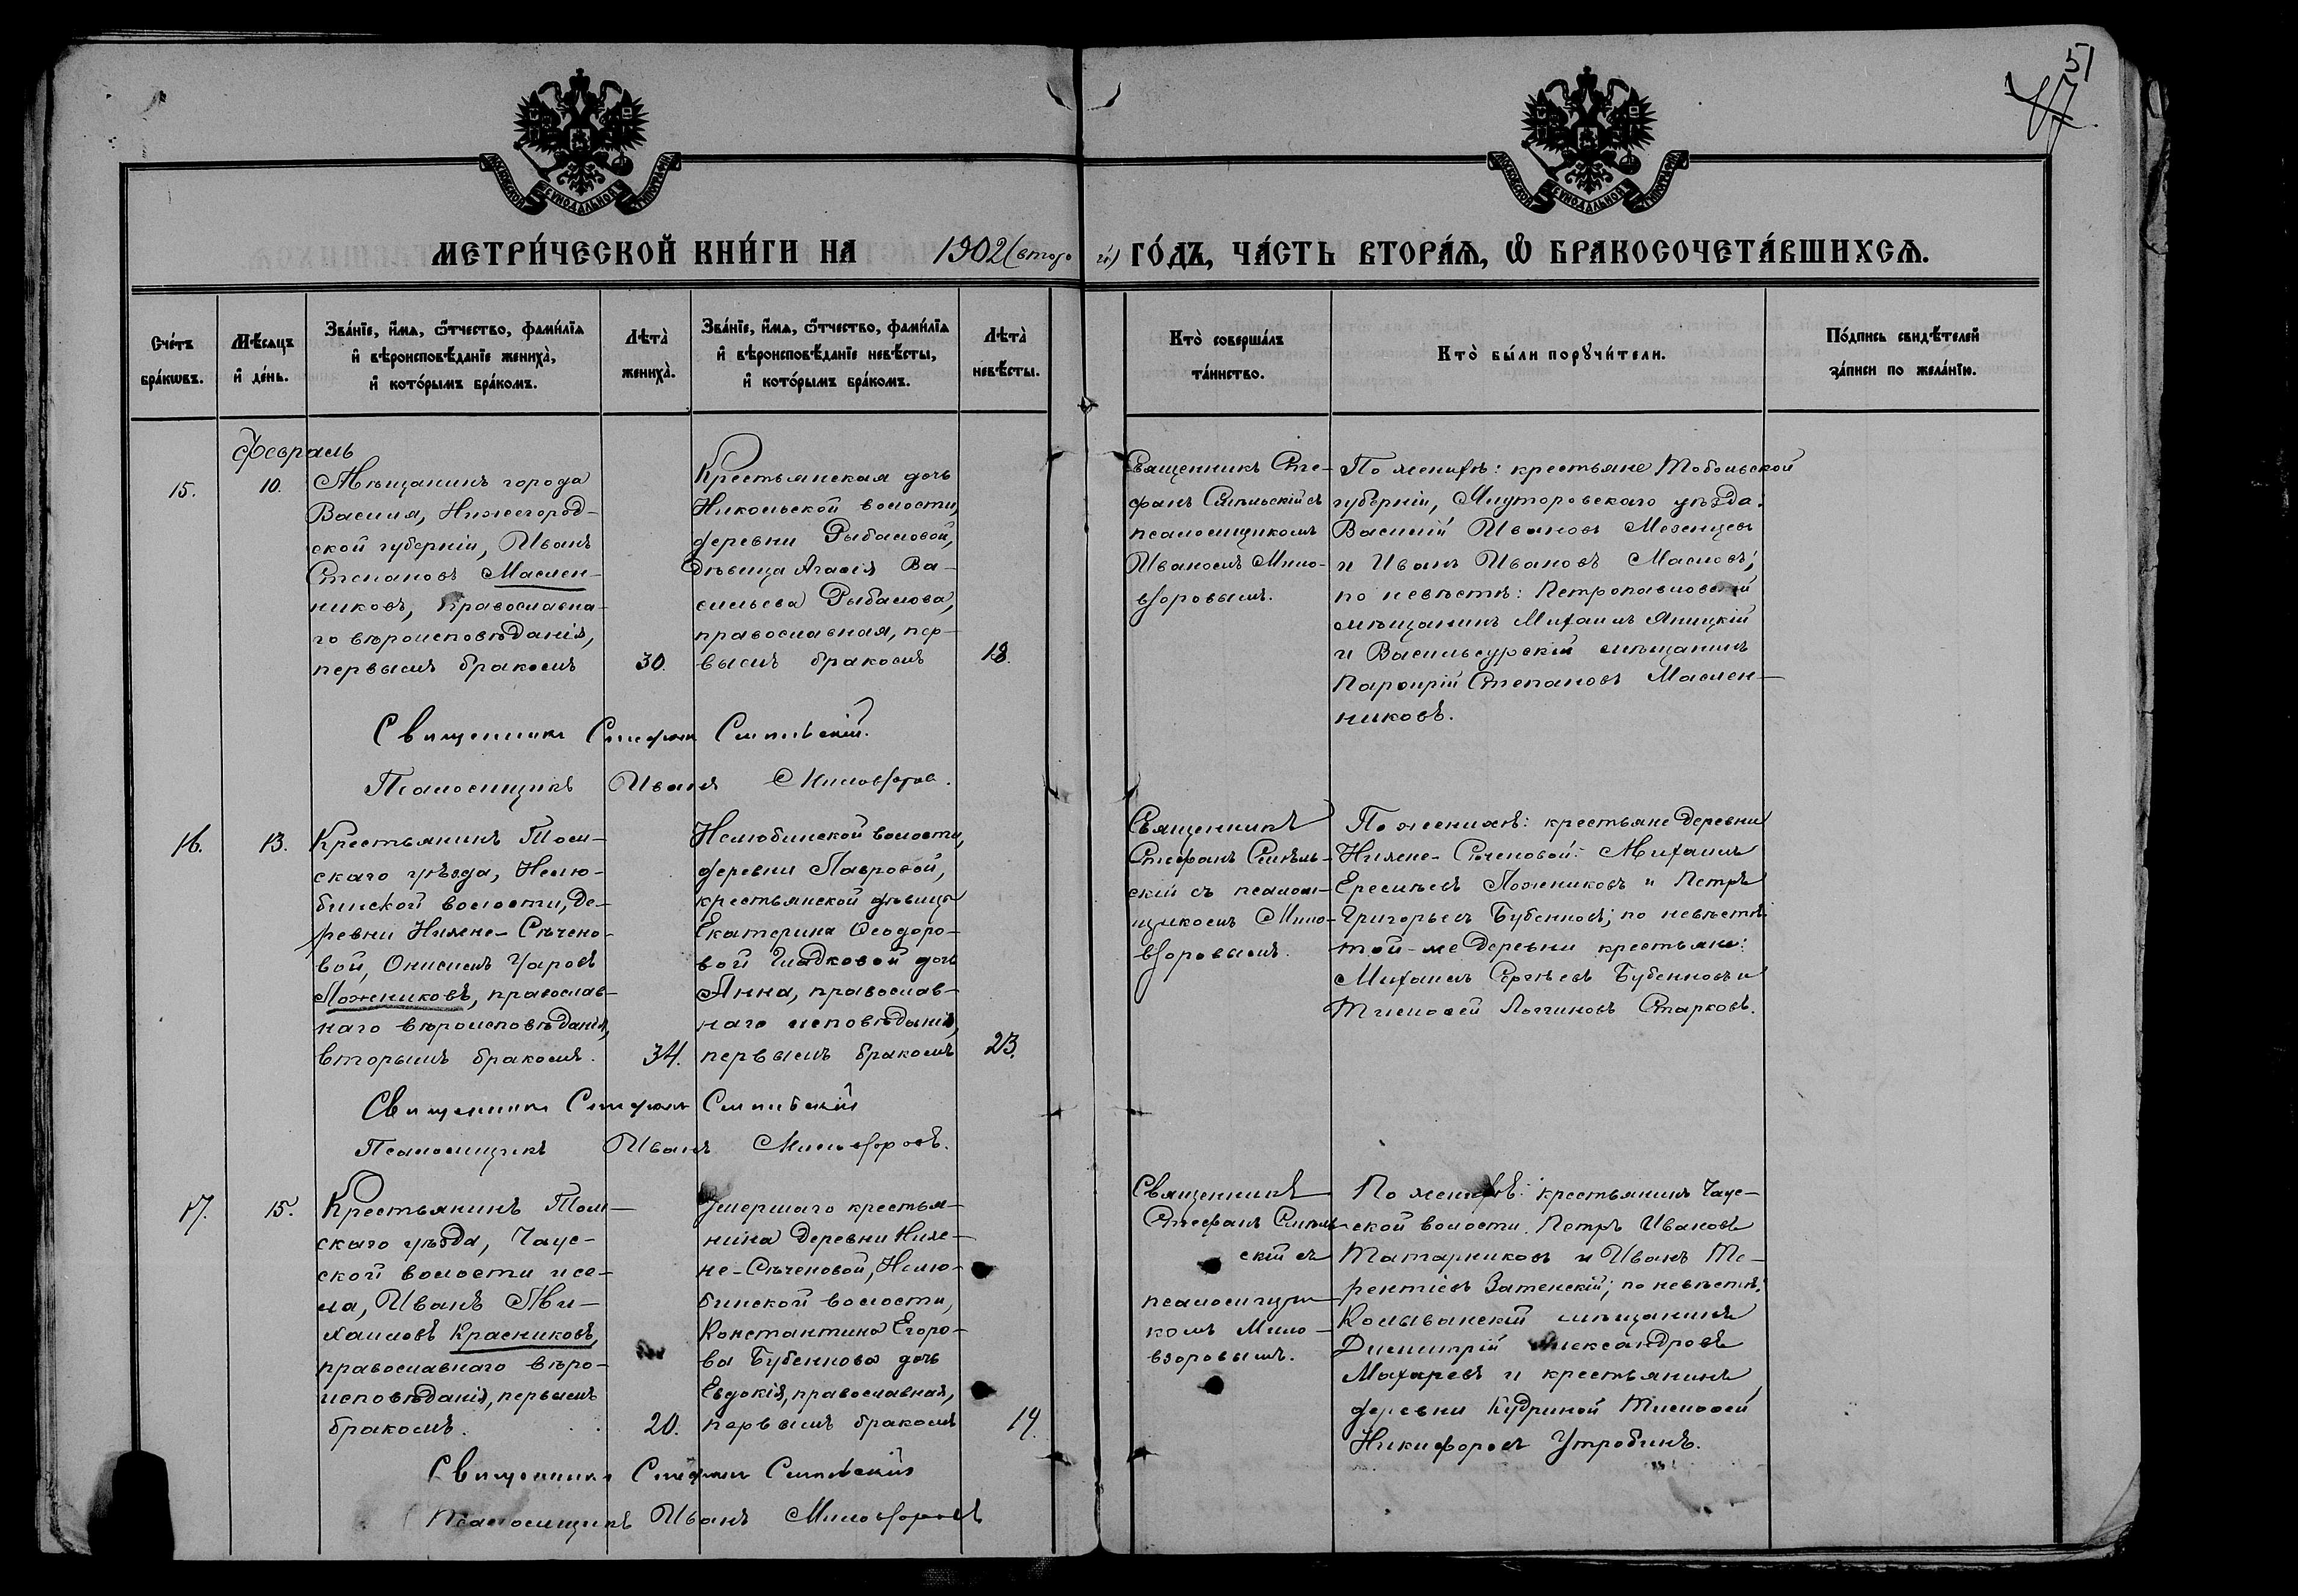 51
МЕТРИ́ЧЕСКОЙ КНИ́ГИ НА 1902 (второй) ГО́ДЪ, ЧА́СТЬ ВТОРА́Ѧ, Ѽ БРАКОСОЧЕТА́ВШИХСѦ.
Сче́тъ бра́кѡвъ.
Мѣ́сяцъ и́ де́нь.
Зва́нїе, и́мѧ, ѻ́тчество, фами́лїѧ
и́ вѣроисповѣ́данїе жениха̀,
и́ кото́рымъ бра́комъ.
Лѣта̀ жениха̀.
Зва́нїе, и́мѧ, ѻ́тчество, фами́лїѧ
и́ вѣроисповѣ́данїе невѣ́сты,
и́ кото́рымъ бра́комъ.
Лѣта̀ невѣ́сты.
Кто̀ соверша́лъ
та́инство.
Кто̀ бы́ли порꙋчи́тели.
По́дпись свидѣ́телей
за́писи по жела́нїю.
Февраль
15.
10.
Мѣщанинъ города
Василя, Нижегород-
ской губерніи, Иванъ
Степановъ Маслен-
никовъ, православна-
го вѣроисповѣданія,
первымъ бракомъ
30.
Крестьянская дочь
Никольской волости,
деревни Рыбаловой,
дѣвица Агаѳія Ва-
сильева Рыбалова,
православная, пер-
вымъ бракомъ
18.
Священникъ Сте-
фанъ Смѣльскій съ
псаломщикомъ
Иваномъ Мило-
взоровымъ.
По женихѣ: крестьяне Тобольской
губерніи, Ялуторовскаго уѣзда:
Василій Ивановъ Меженцевъ
и Иванъ Ивановъ Масловъ;
по невѣстѣ: Петропавловскій
мѣщанинъ Михаилъ Яницкій
и Васильсурскій мѣщанинъ
Парфирій Степановъ Маслен-
никовъ.
Священникъ Стефанъ Смѣльскій.
Псаломщикъ Иванъ Миловзоровъ.
16.
13.
Крестьянинъ Том-
скаго уѣзда, Нелю-
бинской волости, де-
ревни Нижне-Сѣчено-
вой, Онисимъ Уаровъ
Ложниковъ, православ-
наго вѣроисповѣданія,
вторымъ бракомъ.
34.
Нелюбинской волости,
деревни Лавровой,
крестьянской дѣвицы
Екатерины Ѳеодоро-
вой Гладковой дочь
Анна, православ-
наго исповѣданія,
первымъ бракомъ
23.
Священникъ
Стефанъ Смѣль-
скій съ псалом-
щикомъ Мило-
взоровымъ.
По женихѣ: крестьяне деревни
Нижне-Сѣченовой: Михаилъ
Еремѣевъ Ложниковъ и Петръ
Григорьевъ Бубенновъ; по невѣстѣ
той-же деревни крестьяне:
Михаилъ Сергѣевъ Бубенновъ и
Тимоѳей Логгиновъ Старковъ.
Священникъ Стефанъ Смѣльскій
Псаломщикъ Иванъ Миловзоровъ.
17.
15.
Крестьянинъ Том-
скаго уѣзда, Чаус-
ской волости и се-
ла, Иванъ Ми-
хаиловъ Красниковъ,
православнаго вѣро-
исповѣданія, первымъ
бракомъ.
20.
Умершаго крестья-
нина деревни Ниж-
не-Сѣченовой, Нелю-
бинской волости,
Константина Егоро-
ва Бубеннова дочь
Евдокія, православная,
первымъ бракомъ
19.
Священникъ
Стефанъ Смѣль-
скій съ
псаломщи-
комъ Мило-
взоровымъ.
По женихѣ: крестьянинъ Чаус-
ской волости Петръ Ивановъ
Татарниковъ и Иванъ Те-
рентіевъ Затенскій; по невѣстѣ:
Колыванскій мѣщанинъ
Димитрій Александровъ
Махаревъ и крестьянинъ
деревни Кудриной Тимоѳей
Никифоровъ Утробинъ.
Священникъ Стефанъ Смѣльскій
Псаломщикъ Иванъ Миловзоровъ